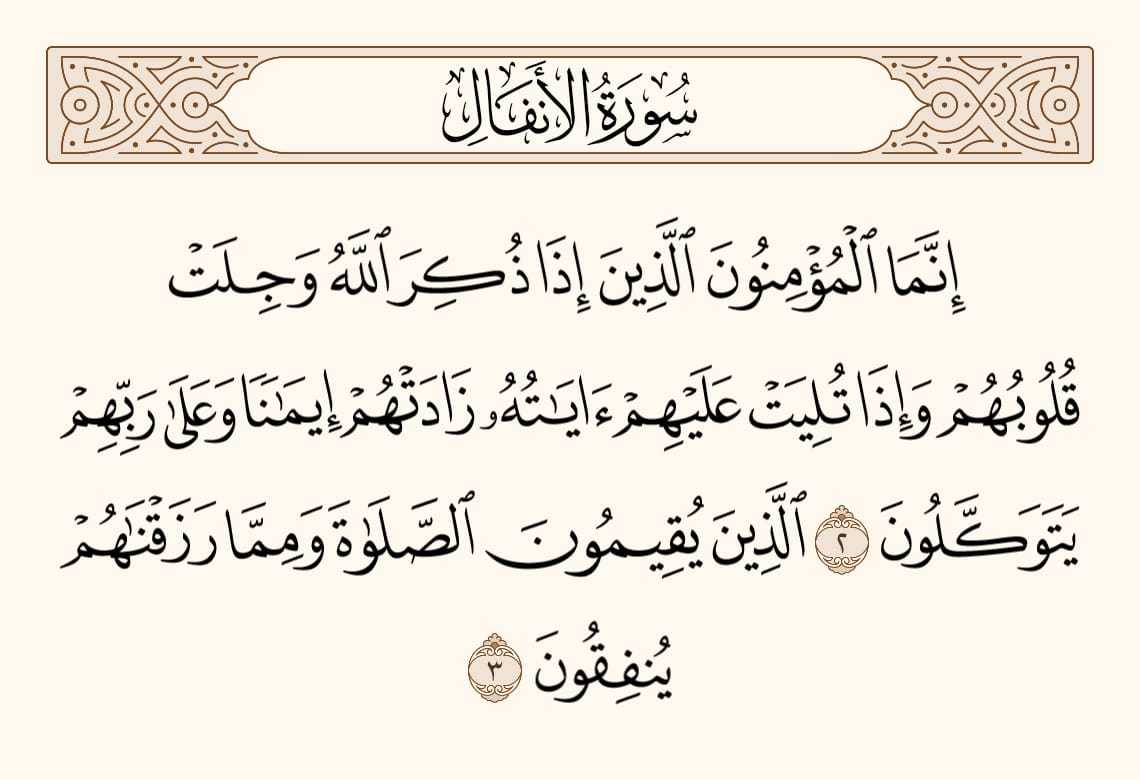 سُورَةُ الأَنفَالِ
إِنَّمَا ٱلْمُؤْمِنُونَ ٱلَّذِينَ إِذَا ذُكِرَ ٱللَّهُ وَجِلَتْ
قُلُوبُهُمْ وَإِذَا تُلِيَتْ عَلَيْهِمْ ءَايَـٰتُهُۥ زَادَتْهُمْ إِيمَـٰنًا وَعَلَىٰ رَبِّهِمْ
يَتَوَكَّلُونَ ٢ ٱلَّذِينَ يُقِيمُونَ ٱلصَّلَوٰةَ وَمِمَّا رَزَقْنَـٰهُمْ
يُنفِقُونَ ٣